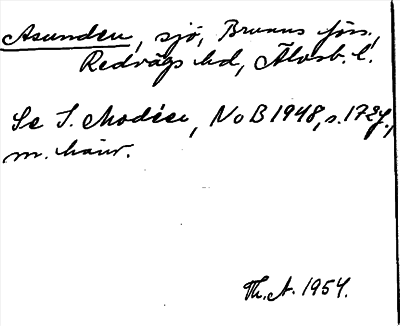 Åsunden, sjö, Brunns förs.,
Redvägs hd, Älvsb. l.
Se I. Modéer, NoB 1948, s. 172 f.,
m. hänv.
Th. A. 1954.